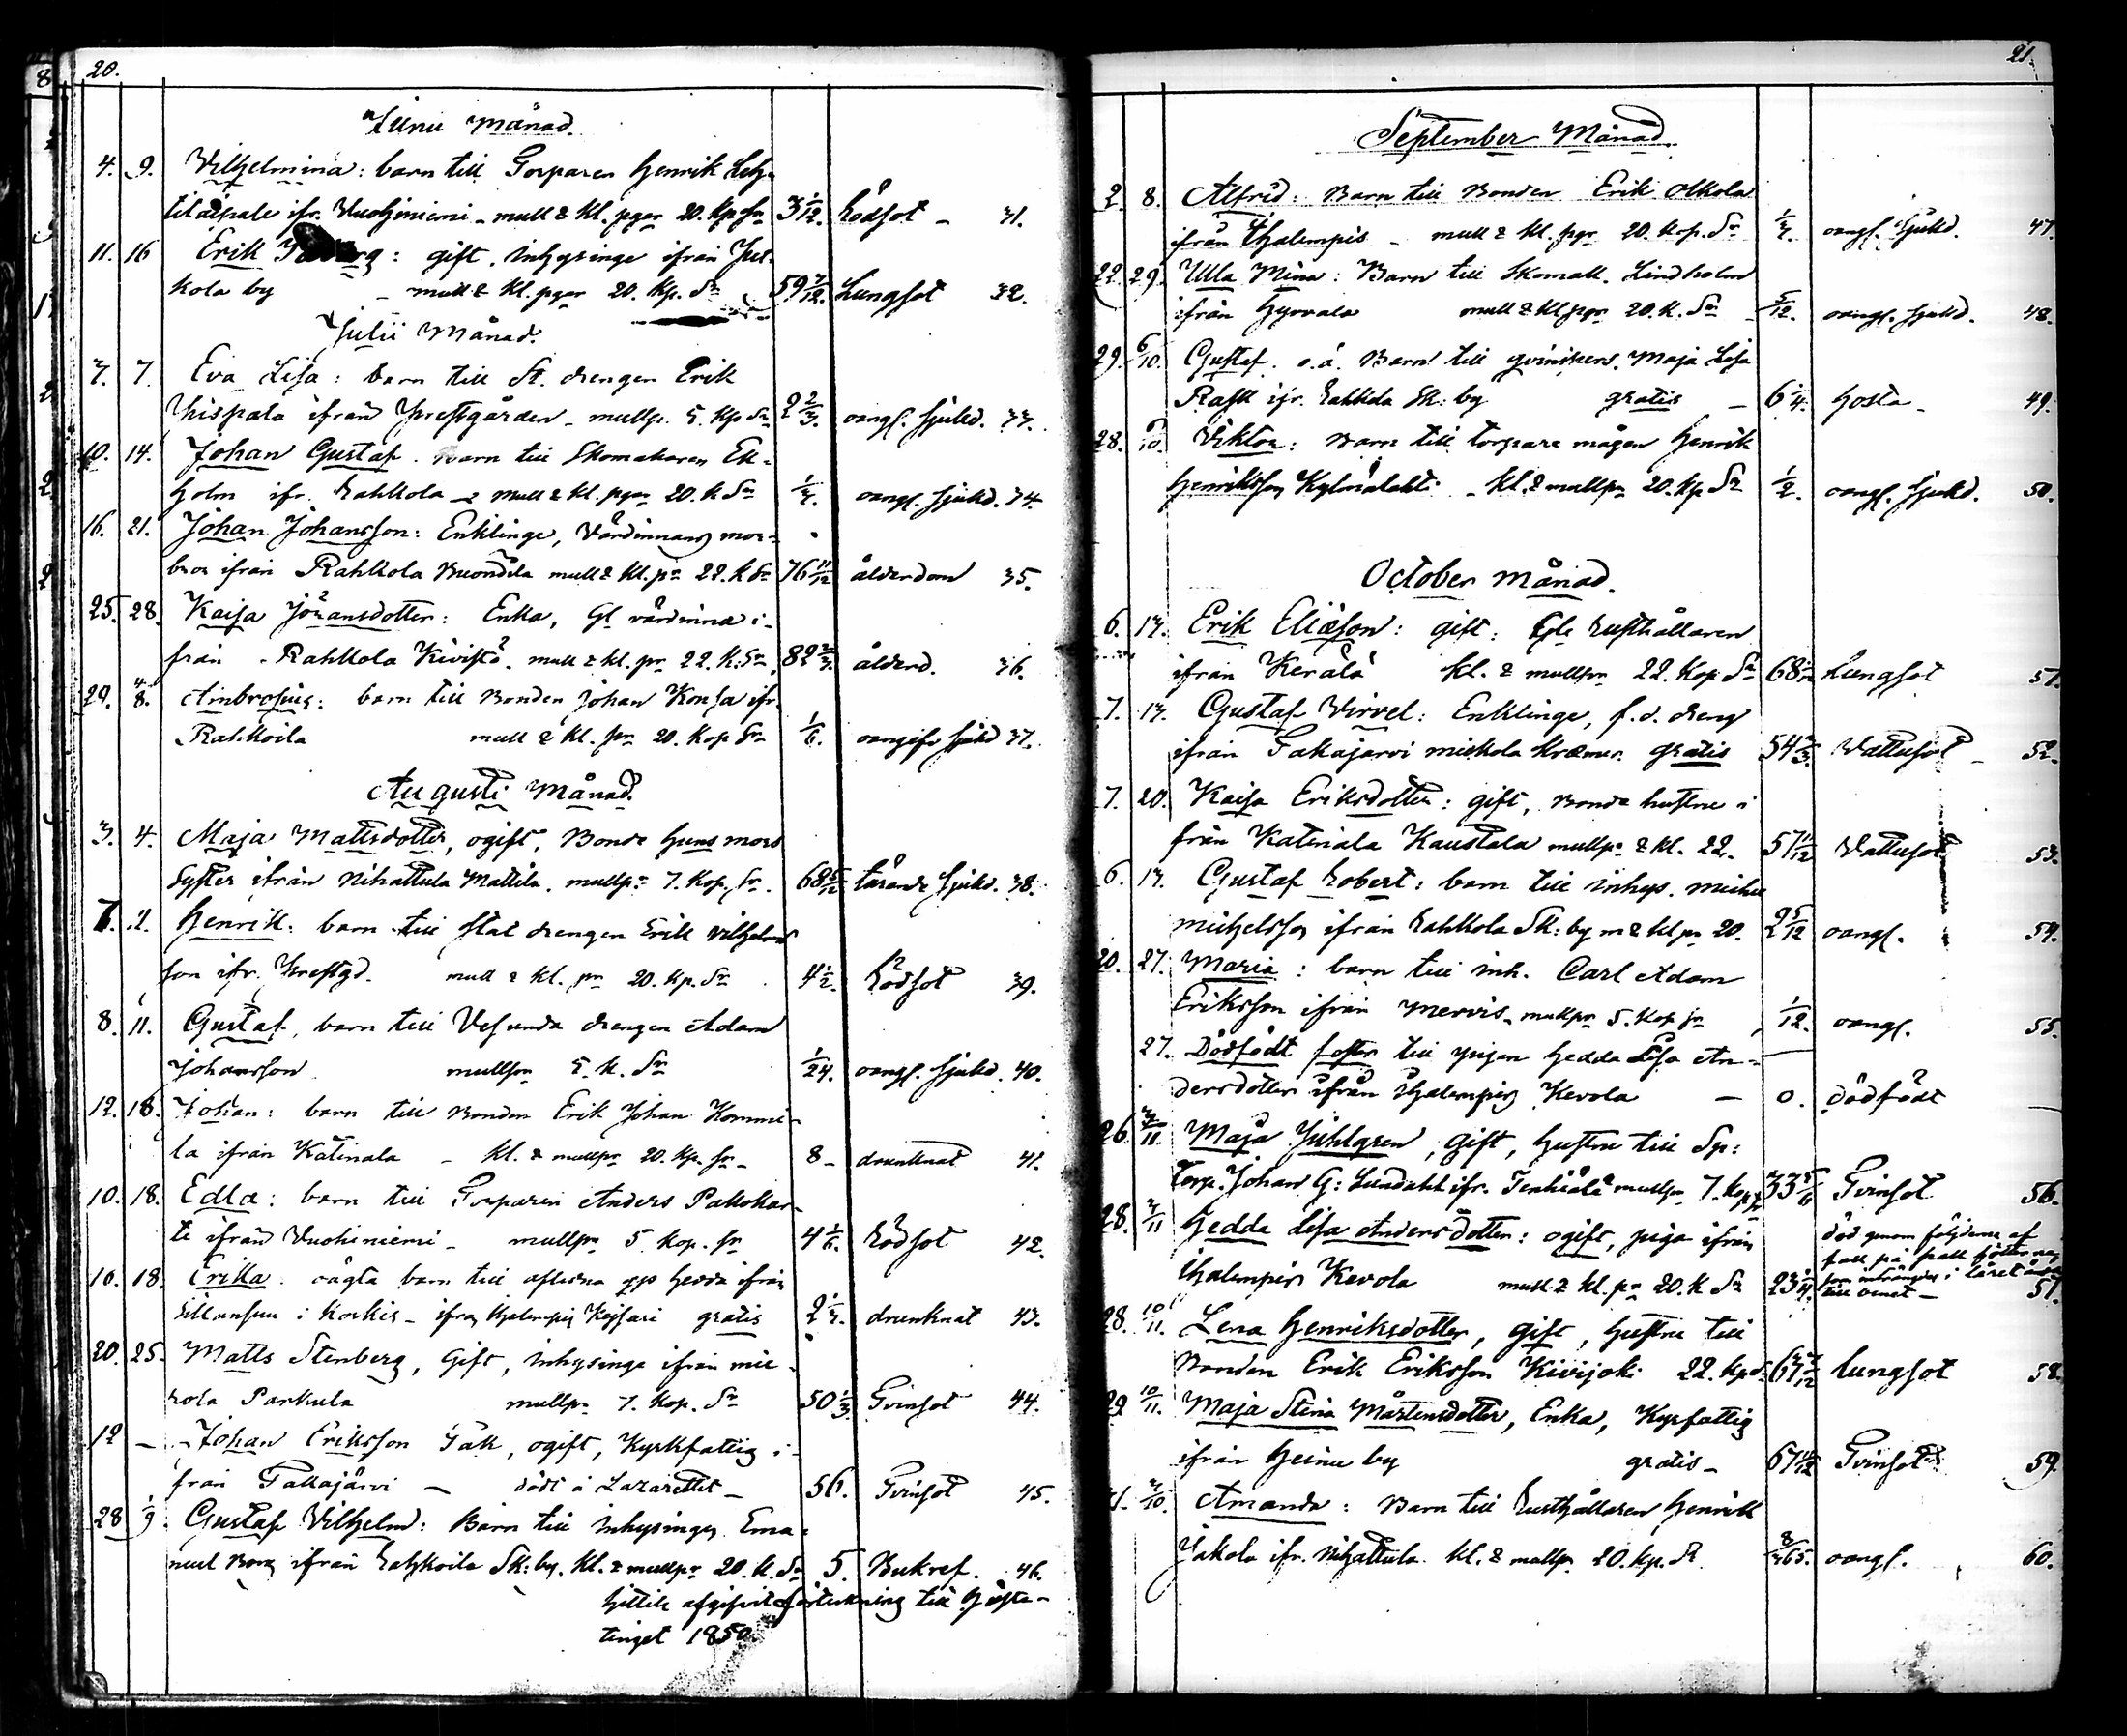 20.
Junii Månad.
4. 9. Vilhelmina: barn till Torparen Henrik Leh-
ifr. Vuohiniemi - mull & kl. pgar 20. kp. Sr 3 1/12. Rödsot - 31.
11. 16 Erik : gift. Inhysinge ifrån Jus-
kola by - mull & kl. pgar 20. Kp. Sr 59 7/12. Lungsot 32.
Julii Månad.
7. 7. Eva Lisa: barn till St. drengen Erik
ifrån Prestgården - mullp. 5. Kp Sr 2 2/3. oangf. sjukd. 33.
10. 14. Johan Gustaf. Barn till Skomakaren Ek-
holm ifr. Rahkola - mull & kl. pgar 20. k Sr 1/3. oangf. sjukd. 34.
16. 21. Johan Johansson: Enklinge, Värdinnans mor-
bror ifrån Rahkola mull & kl. pr 22. K Sr 76 11/12 ålderdom 35.
25. 28. Kaisa Johansdotter: Enka, Gl värdinna i-
från Rahkola Kivistö. mull & kl. pr 22. K. Sr 82 2/3. ålderd. 36.
29. 4/8. Ambrosius: barn till Bonden Johan Konsa ifr.
Rahkoila mull & kl. pr 20. Kop Sr 1/6. oangifv sjukd 37.
Augusti Månad.
3. 4. Maja Mattsdotter, ogift, Bonde hans mors
Syster ifrån Nihattula Mattila. mullpr 7. Kop. Sr. 68 5/12 tärande sjukd. 38.
7. 11. Henrik: barn till stat drengen Erik Vilhelms
son ifr. Prestgd. mull & kl. pr 20. Kp. Sr 4 1/2. Rödsot 39.
8. 11. Gustaf, barn till Vesunda drengen Adam
Johansson mullpr 5. k. Sr 1/24. oangf. sjukd. 40.
12. 18. Johan: barn till Bonden Erik Johan Kommi-
la ifrån Katinala - kl. & mullpr 20. Kp. Sr - 8 - drunknat 41.
10. 18. Edla: barn till Torparen Anders Pakokar-
ti ifrån Vuohiniemi - mullpr 5. Kop. Sr 4 1/6. Rödsot 42.
16. 18. Erika. oägta barn till aflidna Hedda ifrån
i - ifrån gratis 2 1/3. drunknat 43.
20. 25. Matts Stenberg, Gift, Inhysinge ifrån Mie-
rola Parkula mullpr 7. Kop. Sr 50 1/3. Tvinsot 44.
12 - Johan Eriksson Täk, ogift, Kyrkfattig i-
från Takajärvi - dödt å Lazarettet - 56. Tvinsot 45.
28 1/9. Gustaf Vilhelm: Barn till Inhysinges Ema-
nuel Borg ifrån Rahkoila Sk: by. kl. & mullpr 20. k. Sr 5. Bukref. 46.
Hittils afgifvit förteckning till Höste-
tinget 1850.
21.
September Månad.
2. 8. Alfrid: Barn till Bonden Erik Olkola
ifrån Thalempis - mull & kl. pgr 20. Kop. Sr 1/3. oangf. sjukd. 47.
22. 29. Ulla Mina: Barn till Skomak. Lindholm
ifrån Hyrvala mull & kl pgr 20. K. Sr 5/12. oangf. sjukd. 48.
29. 6/10. Gustaf. o.ä. Barn till qvinspers. Maja Lisa
Rask ifr. Rahkola Sk: by gratis - 6 1/4. Hosta - 49.
28. Viktor: Barn till torpare mågen Henrik
Henriksson Kylmälahti - kl. & mullpr 20. Kp Sr 1/2. oangf. sjukd. 50.
October Månad.
6. 13. Erik Eliæson: gift: Gle Rusthållaren
ifrån Kerälä kl. & mullpr 22. Kop. Sr 68 Lungsot 51.
7. 13. Gustaf Virvel: Enklinge, f.d. dreng
ifrån Takajärvi mickola Kræmer. gratis 54 2/3. Vattusot - 52.
7. 20. Kaisa Eriksdotter: gift, Bonde hustru i
från Katinala Kaustala mullpr & kl. 22. 57 Vattusot 53.
6. 13. Gustaf Robert: barn till inhys. Michel
Michelsson ifrån Rahkola Sk: by m & kl pr 20. 2 5/12 oangf. 54.
20. 27. Maria: barn till inh. Carl Adam
Eriksson ifrån Mervis. mullpr 5. Kop Sr 1/12. oangf. 55.
27. Dödfödt foster till pigan Hedda Lisa An-
dersdotter ifrån Thalempis Kevola - 0. Dödfödt
26. 3/11. Maja Juhlgren, gift, hustru till Sp:
Torp. Johan G: Lundahl ifr. Tenhiälä mullpr 7. Kop Sr 33 Tvinsot 56.
28. 3/11 Hedda Lisa Andersdotter: ogift, piga ifrån
Thalempis Kevola mull & kl. pr 20. K Sr 23 3/4. död genom följderna af
fall på
i låret
57.
28. 10/11. Lena Henriksdotter, gift, hustru till
Bonden Erik Eriksson Kivijoki 22. kp Sr 67 lungsot 58.
29 10/11. Maja Stina Mårtensdotter, Enka, Kyrfattig
ifrån Heinu by gratis - 67 Tvinsot 59.
Amanda: Barn till Rusthållaren Henrik
Jakola ifr. Nihattula. kl. & mullp. 20. Kp. Sr 8/365. oangf. 60.